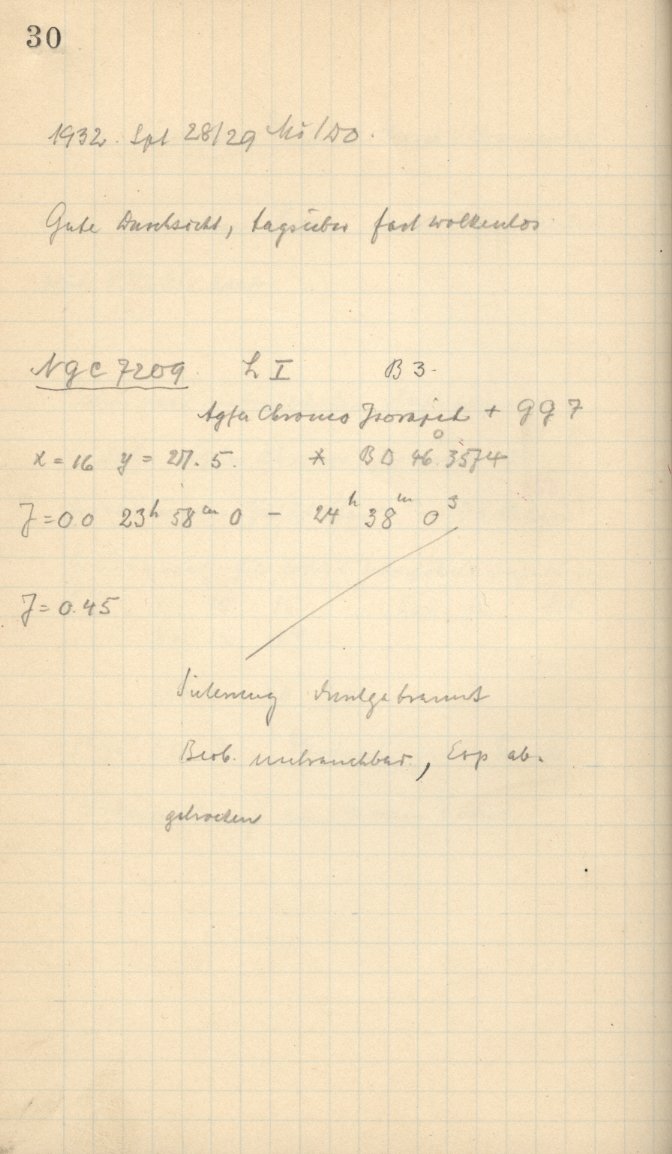 30
1932. Spt 28/29 Mö/DO.
Gute Durchsicht, tagsüber fast wolkenlos
NGC 7209 L I B 3.
Agfa Chromo Isorapid + GG 7
x = 16 y = 27.5. * BD 46° 3574
J = 0.0 23h 58m 0 - 24h 38m 0s
J = 0.45
Sicherung durchgebrannt
Beob. unbrauchbar, Exp ab-
gebrochen